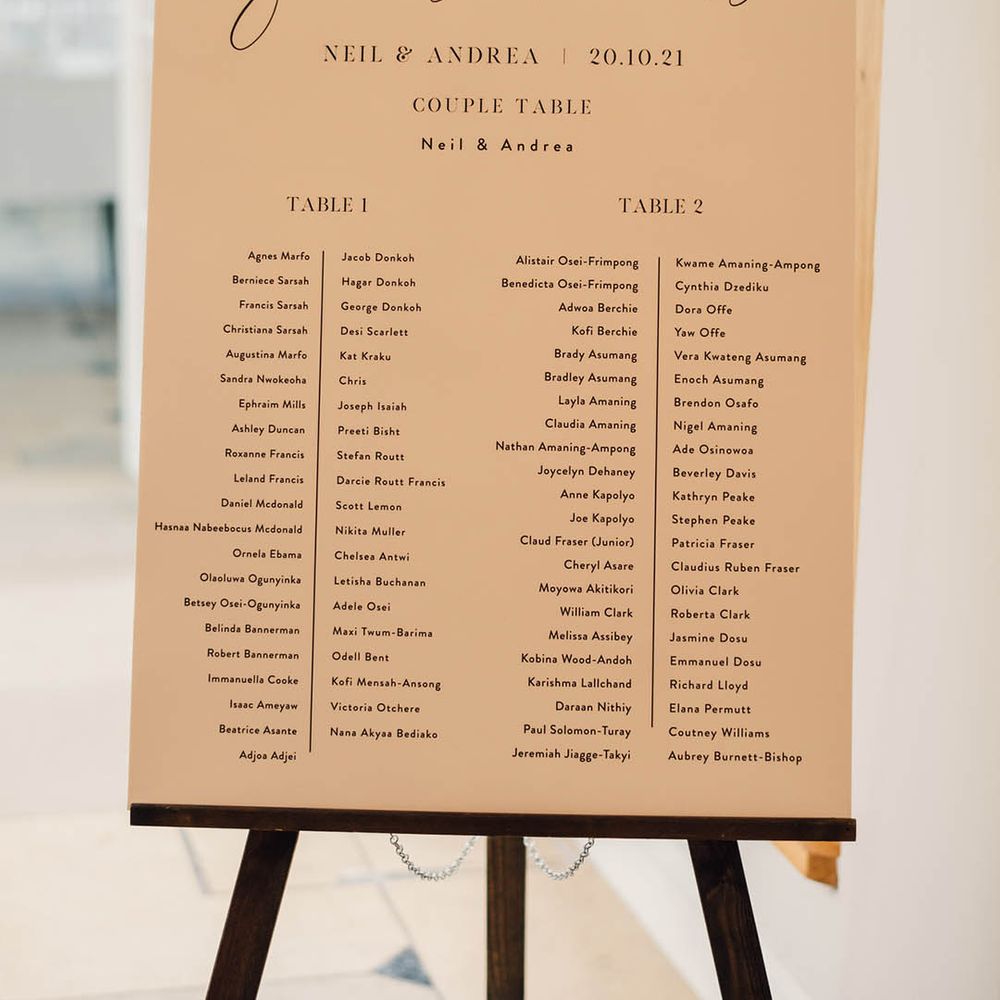 NEIL & ANDREA | 20.10.21
COUPLE TABLE
Neil & Andrea
TABLE 1
Agnes Marfo
Berniece Sarsah
Francis Sarsah
Christiana Sarsah
Augustina Marfo
Sandra Nwokeoha
Ephraim Mills
Ashley Duncan
Roxanne Francis
Leland Francis
Daniel Mcdonald
Hasnaa Nabeebocus Mcdonald
Ornela Ebama
Olaoluwa Ogunyinka
Betsey Osei-Ogunyinka
Belinda Bannerman
Robert Bannerman
Immanuella Cooke
Isaac Ameyaw
Beatrice Asante
Adjoa Adjei
Jacob Donkoh
Hagar Donkoh
George Donkoh
Desi Scarlett
Kat Kraku
Chris
Joseph Isaiah
Preeti Bisht
Stefan Routt
Darcie Routt Francis
Scott Lemon
Nikita Muller
Chelsea Antwi
Letisha Buchanan
Adele Osei
Maxi Twum-Barima
Odell Bent
Kofi Mensah-Ansong
Victoria Otchere
Nana Akyaa Bediako
TABLE 2
Alistair Osei-Frimpong
Benedicta Osei-Frimpong
Adwoa Berchie
Kofi Berchie
Brady Asumang
Bradley Asumang
Layla Amaning
Claudia Amaning
Nathan Amaning-Ampong
Joycelyn Dehaney
Anne Kapolyo
Joe Kapolyo
Claud Fraser (Junior)
Cheryl Asare
Moyowa Akitikori
William Clark
Melissa Assibey
Kobina Wood-Andoh
Karishma Lallchand
Daraan Nithiy
Paul Solomon-Turay
Jeremiah Jiagge-Takyi
Kwame Amaning-Ampong
Cynthia Dzediku
Dora Offe
Yaw Offe
Vera Kwateng Asumang
Enoch Asumang
Brendon Osafo
Nigel Amaning
Ade Osinowoa
Beverley Davis
Kathryn Peake
Stephen Peake
Patricia Fraser
Claudius Ruben Fraser
Olivia Clark
Roberta Clark
Jasmine Dosu
Emmanuel Dosu
Richard Lloyd
Elana Permutt
Coutney Williams
Aubrey Burnett-Bishop